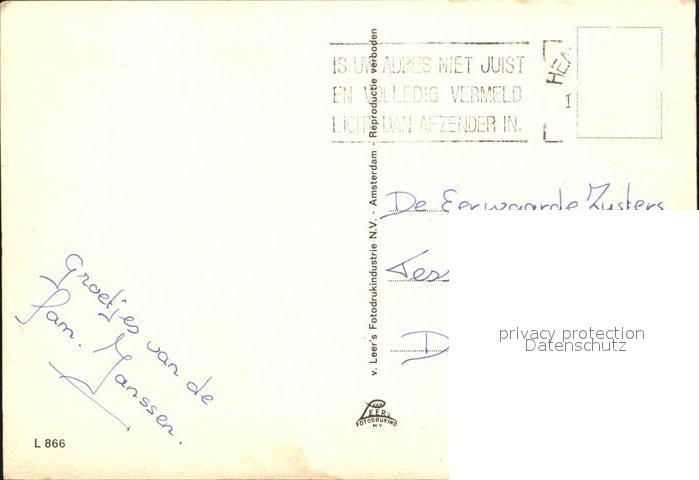 IS UW ADRES NIET JUIST
EN VOLLEDIG VERMELD
LICHT DAN AFZENDER IN.
v. Leer's Fotodrukindustrie N.V. - Amsterdam - Reproductie verboden
De Eerwaarde Zusters
Groetjes van de
fam. Janssen.
privacy protection
Datenschutz
VAN
LEER's
FOTODRUKIND
NV
L 866